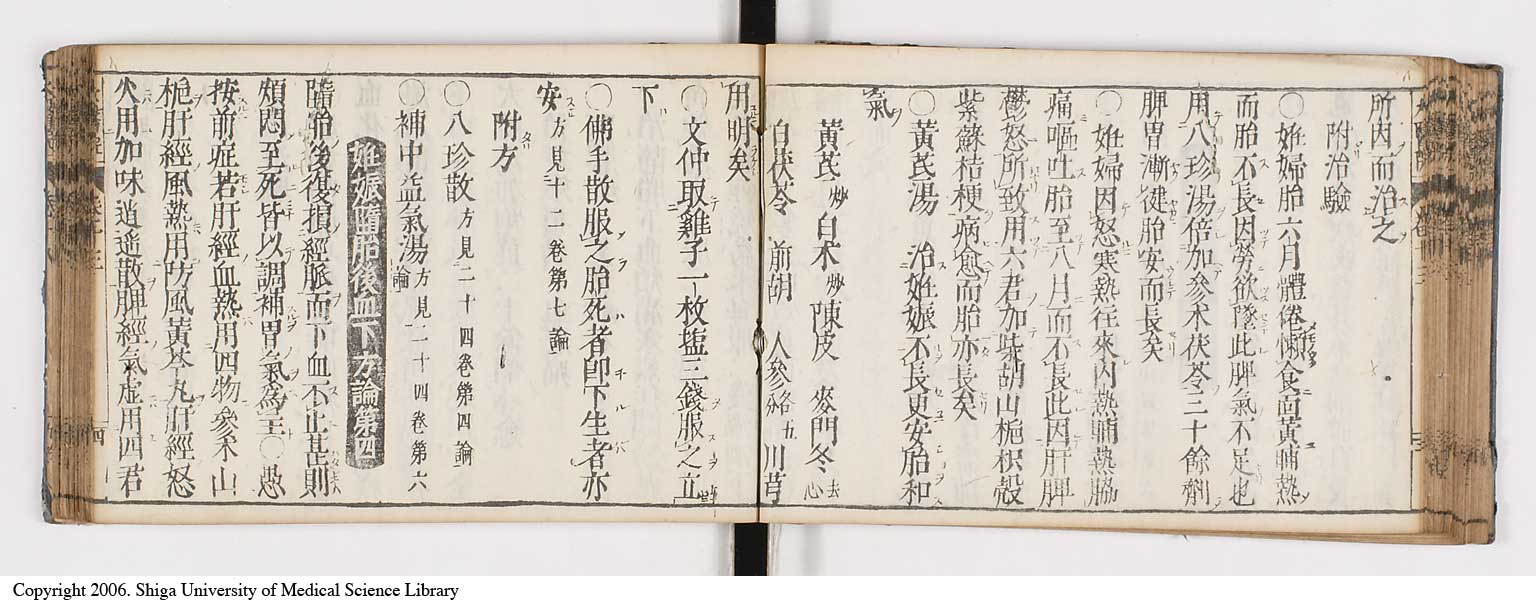 所因而治之
附治驗
○妊婦胎六月體倦懶食面黃晡熱
而胎不長因勞欲墜此脾氣不足也
用八珍湯倍加參朮茯苓三十餘劑
脾胃漸健胎安而長矣
○妊婦因怒寒熱往來內熱晡熱脇
痛嘔吐胎至八月而不長此因肝脾
鬱怒所致用六君加柴胡山梔枳殼
紫蘇桔梗病愈而胎亦長矣
○黃芪湯 治妊娠不長更安胎和
氣
黃芪炒 白朮炒 陳皮 麥門冬去心
白茯苓 前胡 人參各五 川芎
用明矣
○文仲取雞子一枚塩三錢服之立
下
○佛手散服之胎死者卽下生者亦
安方見十二卷第七論
附方
○八珍散方見二十四卷第四論
○補中益氣湯方見二十四卷第六論
妊娠墮胎後血下方論第四
墮胎後復損經脈而下血不止甚則
煩悶至死皆以調補胃氣爲主○愚
按前症若肝經血熱用四物參朮山
梔肝經風熱用防風黃芩丸肝經怒
火用加味逍遙散脾經氣虛用四君
Copyright 2006. Shiga University of Medical Science Library